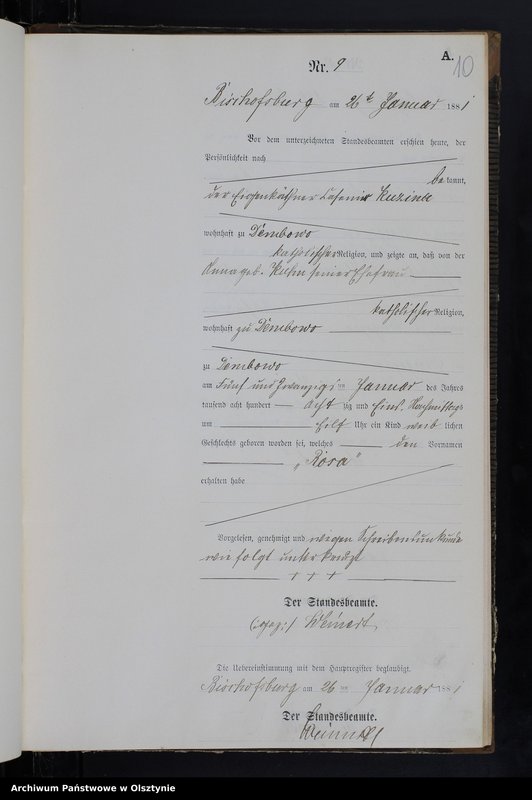 A.
10
Nr. 9
Bischofsburg am 26t Januar 1881
Vor dem unterzeichneten Standesbeamten erschien heute, der
Persönlichkeit nach
bekannt,
der Eigenkäthner
wohnhaft zu Dembowo
katholischer Religion, und zeigte an, daß von der
Anna geb. Kuhn seiner Ehefrau
katholischer Religion,
wohnhaft zu Dembowo
zu Dembowo
am Fünf und zwanzigsten Januar des Jahres
tausend acht hundert acht zig und Eins Nachmittags
um Eilf Uhr ein Kind weib lichen
Geschlechts geboren worden sei, welches den Vornamen
„Rosa"
erhalten habe
Vorgelesen, genehmigt und wegen Schreibensunkunde
wie folgt unterkreuzt
+ + +
Der Standesbeamte.
(gez:) Weinert
Die Uebereinstimmung mit dem Hauptregister beglaubigt.
Bischofsburg am 26 ten Januar 1881
Der Standesbeamte.
Weinert
Archiwum Państwowe w Olsztynie